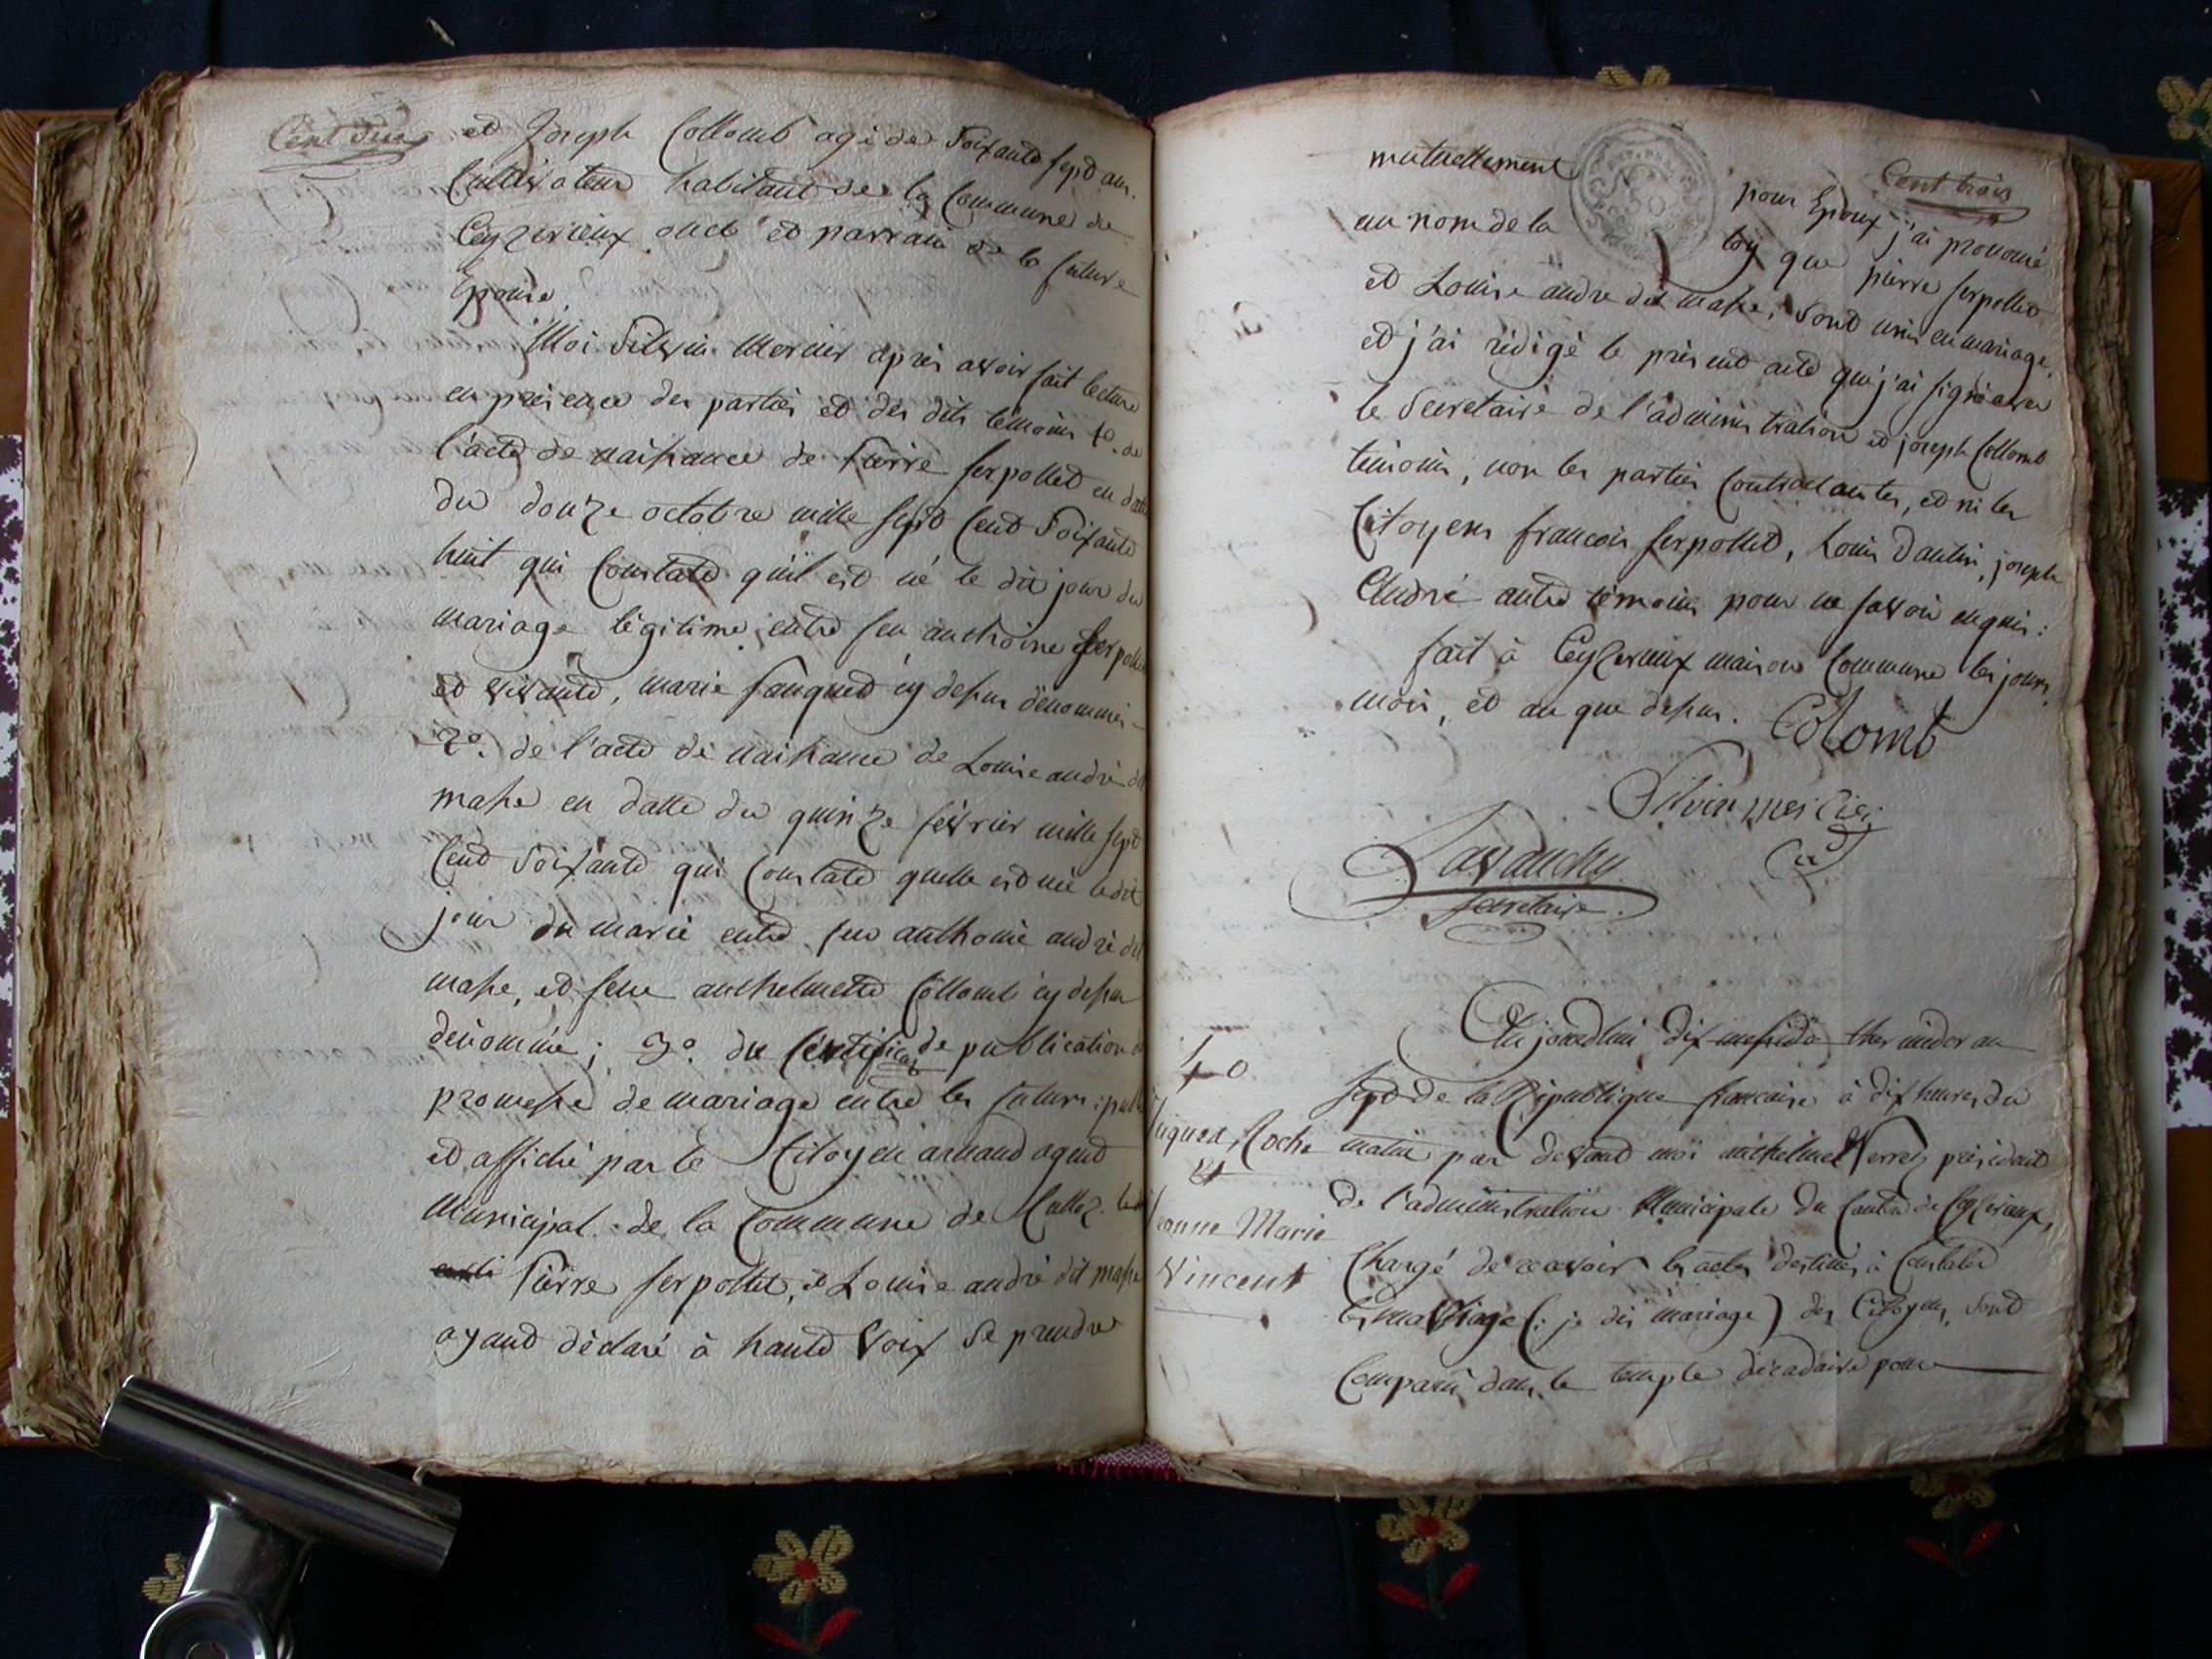 Cent deux
et Joseph Collomb agé de Soixante sept ans.
Cultivateur habitant de la Commune de
Ceyzerieux oncle et parrain de la future
Epouse.
Moi Silvin Mercier après avoir fait lecture
en présence des parties et des dits témoins 1º. de
l'acte de naissance de Pierre Serpollet en datte
du douze octobre mille sept cent Soixante
huit qui Constate qu'il est né le dit jour du
mariage légitime entre feu anthoine Serpolle
et vivante, marie fanquet cy dessus dénommés
2º. de l'acte de naissance de Louise andré dit
masse en datte du quinze février mille sept
Cent Soixante qui Constate quelle est née le dit
jour du marié entre feu anthoine andré dit
masse, et feue anthelmette Collomb cy dessus
dénommée ; 3º. du Certificat de publication
promesse de mariage entre les futurs : publ
et affiché par le Citoyen arnaud agent
Municipal de la Commune de Culloz. les
Pierre Serpollet, et Louise andré dit masse
ayant déclaré à haute voix se prendre
Cent trois
mutuellement pour Epoux j'ai prononcé
au nom de la loy que pierre serpollet
et Louise andre dit masse, sont unis en mariage,
et j'ai rédigé le présent acte que j'ai signé avec
le Secretaire de l'administration et joseph Collomb
témoin, non les parties Contractantes, et ni les
Citoyens francois serpollet, Louis Dantin, joseph
André autre témoins pour ne savoir enquis :
fait à Ceyzerieux maison Commune les jours,
mois, et an que dessus. Colomb
Silvin mercier
Lavanchy
secretaire.
40
Roche
et
Jeanne Marie
Vincent
Aujourdhui dix thermidor an
sept de la République francaise à dix heures du
matin par devant moi anthelme président
de l'administration Municipale du Canton de Ceyzerieux,
Chargé de recevoir les actes destinés à Constater
les mariage (: je dis mariage) des Citoyens, sont
Comparu dans le temple décadaire pour